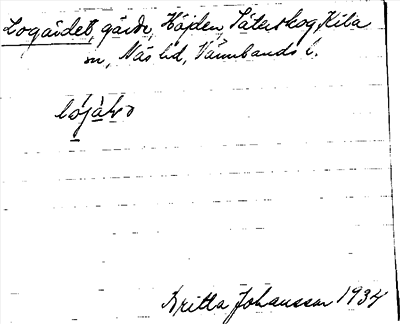 Logärdet, gärde, Höjden, Säterskog, Kila
sn, Näs hd, Värmlands l.
lo̱jàḷɴ
Britta Johansson 1934